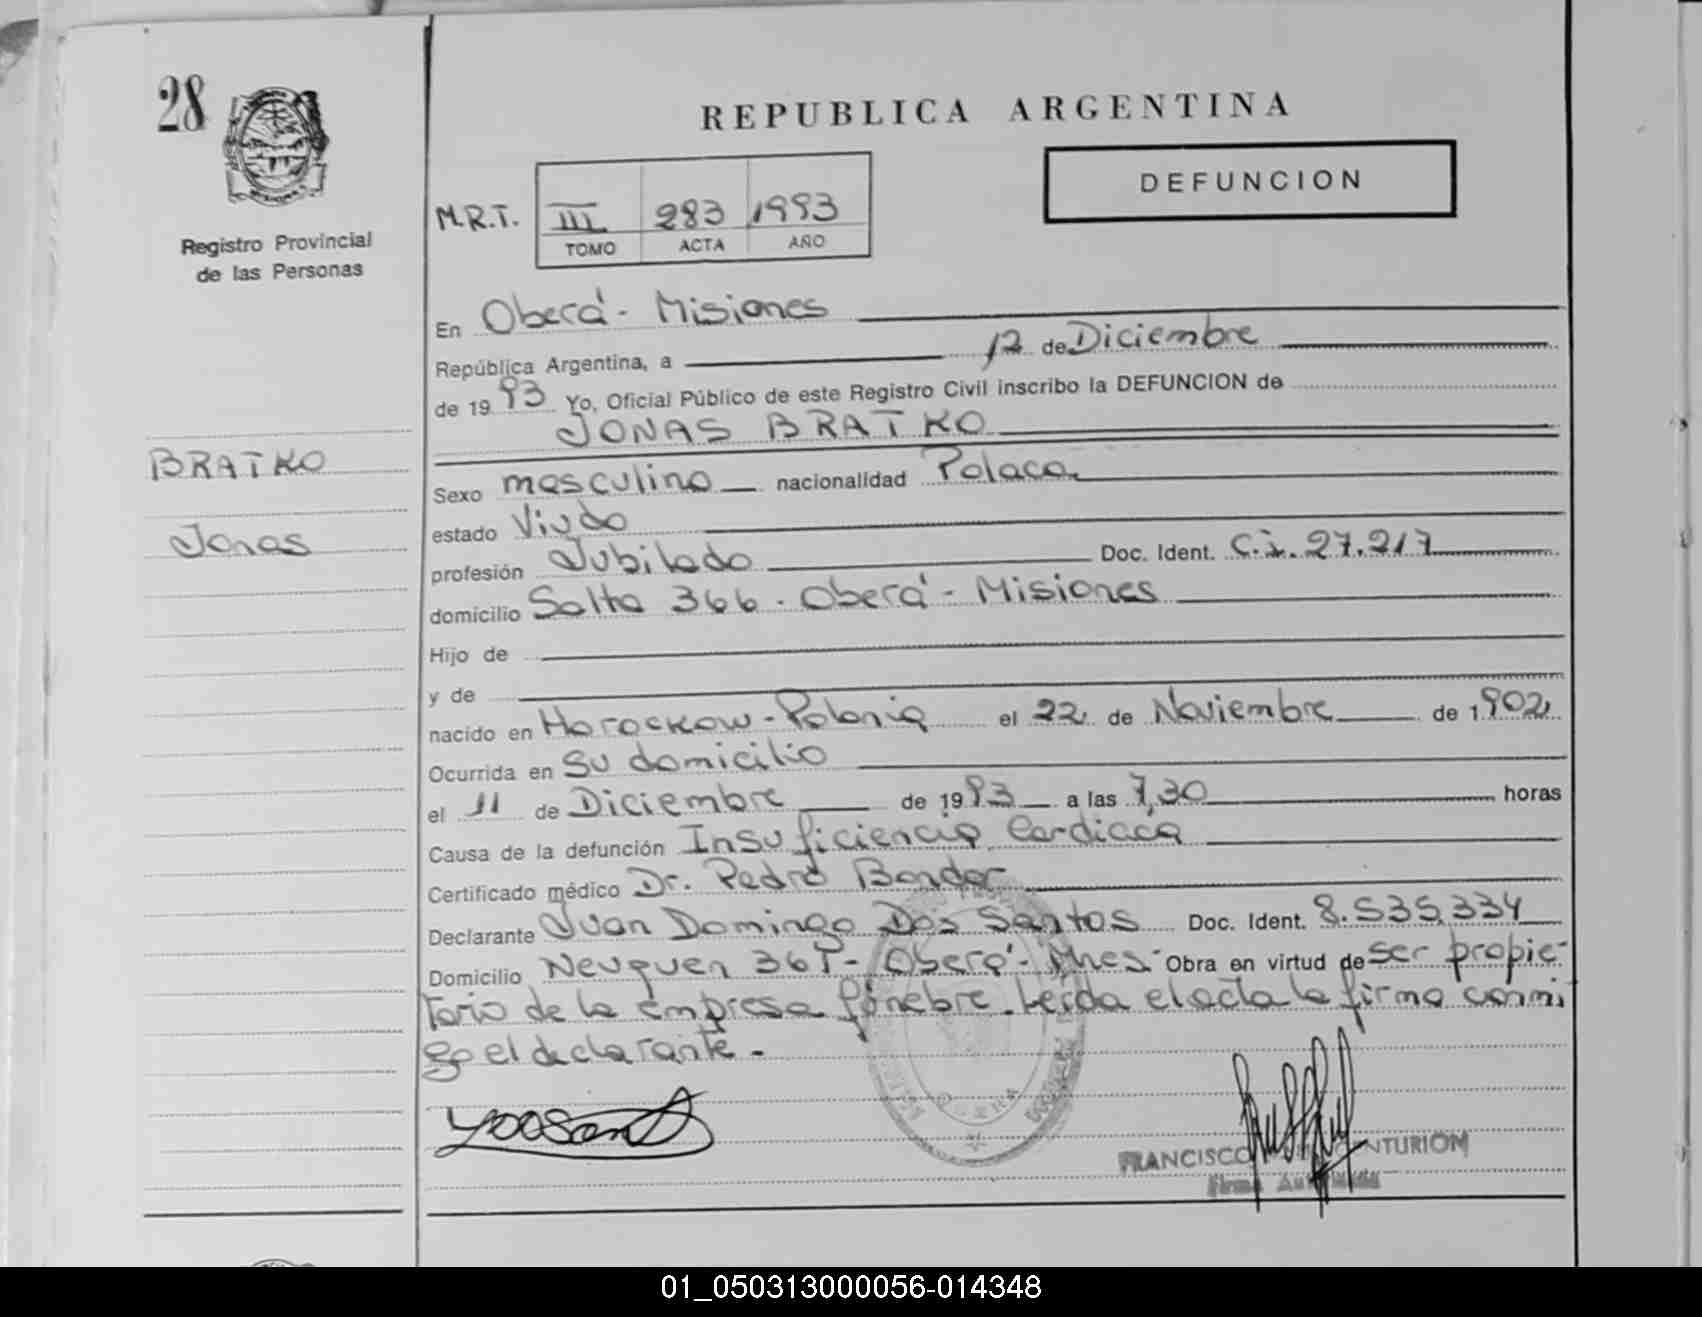 28
REPUBLICA ARGENTINA
DEFUNCION
M.R.T. III 283 1993
TOMO ACTA AÑO
Registro Provincial
de las Personas
BRATKO
Jonas
En Oberá - Misiones
República Argentina, a 12 de Diciembre
de 19 93 Yo, Oficial Público de este Registro Civil inscribo la DEFUNCION de
JONAS BRATKO
Sexo masculino nacionalidad Polaca
estado Viudo
profesión Jubilado Doc. Ident. C.I. 27.217
domicilio Salta 366 - Oberá - Misiones
Hijo de
y de
nacido en Horockow - Polonia el 22 de Noviembre de 1902
Ocurrida en su domicilio
el 11 de Diciembre de 1993 a las 7,30 horas
Causa de la defunción Insuficiencia Cardiaca
Certificado médico Dr. Pedro Bondar
Declarante Juan Domingo Dos Santos Doc. Ident. 8.535.334
Domicilio Neuquen 365 - Oberá - Mnes - Obra en virtud de ser propie-
tario de la empresa fúnebre. Leída el acta la firma conmi
go el declarante. -
FRANCISCO CENTURION
Firma Autorizada
01_050313000056-014348